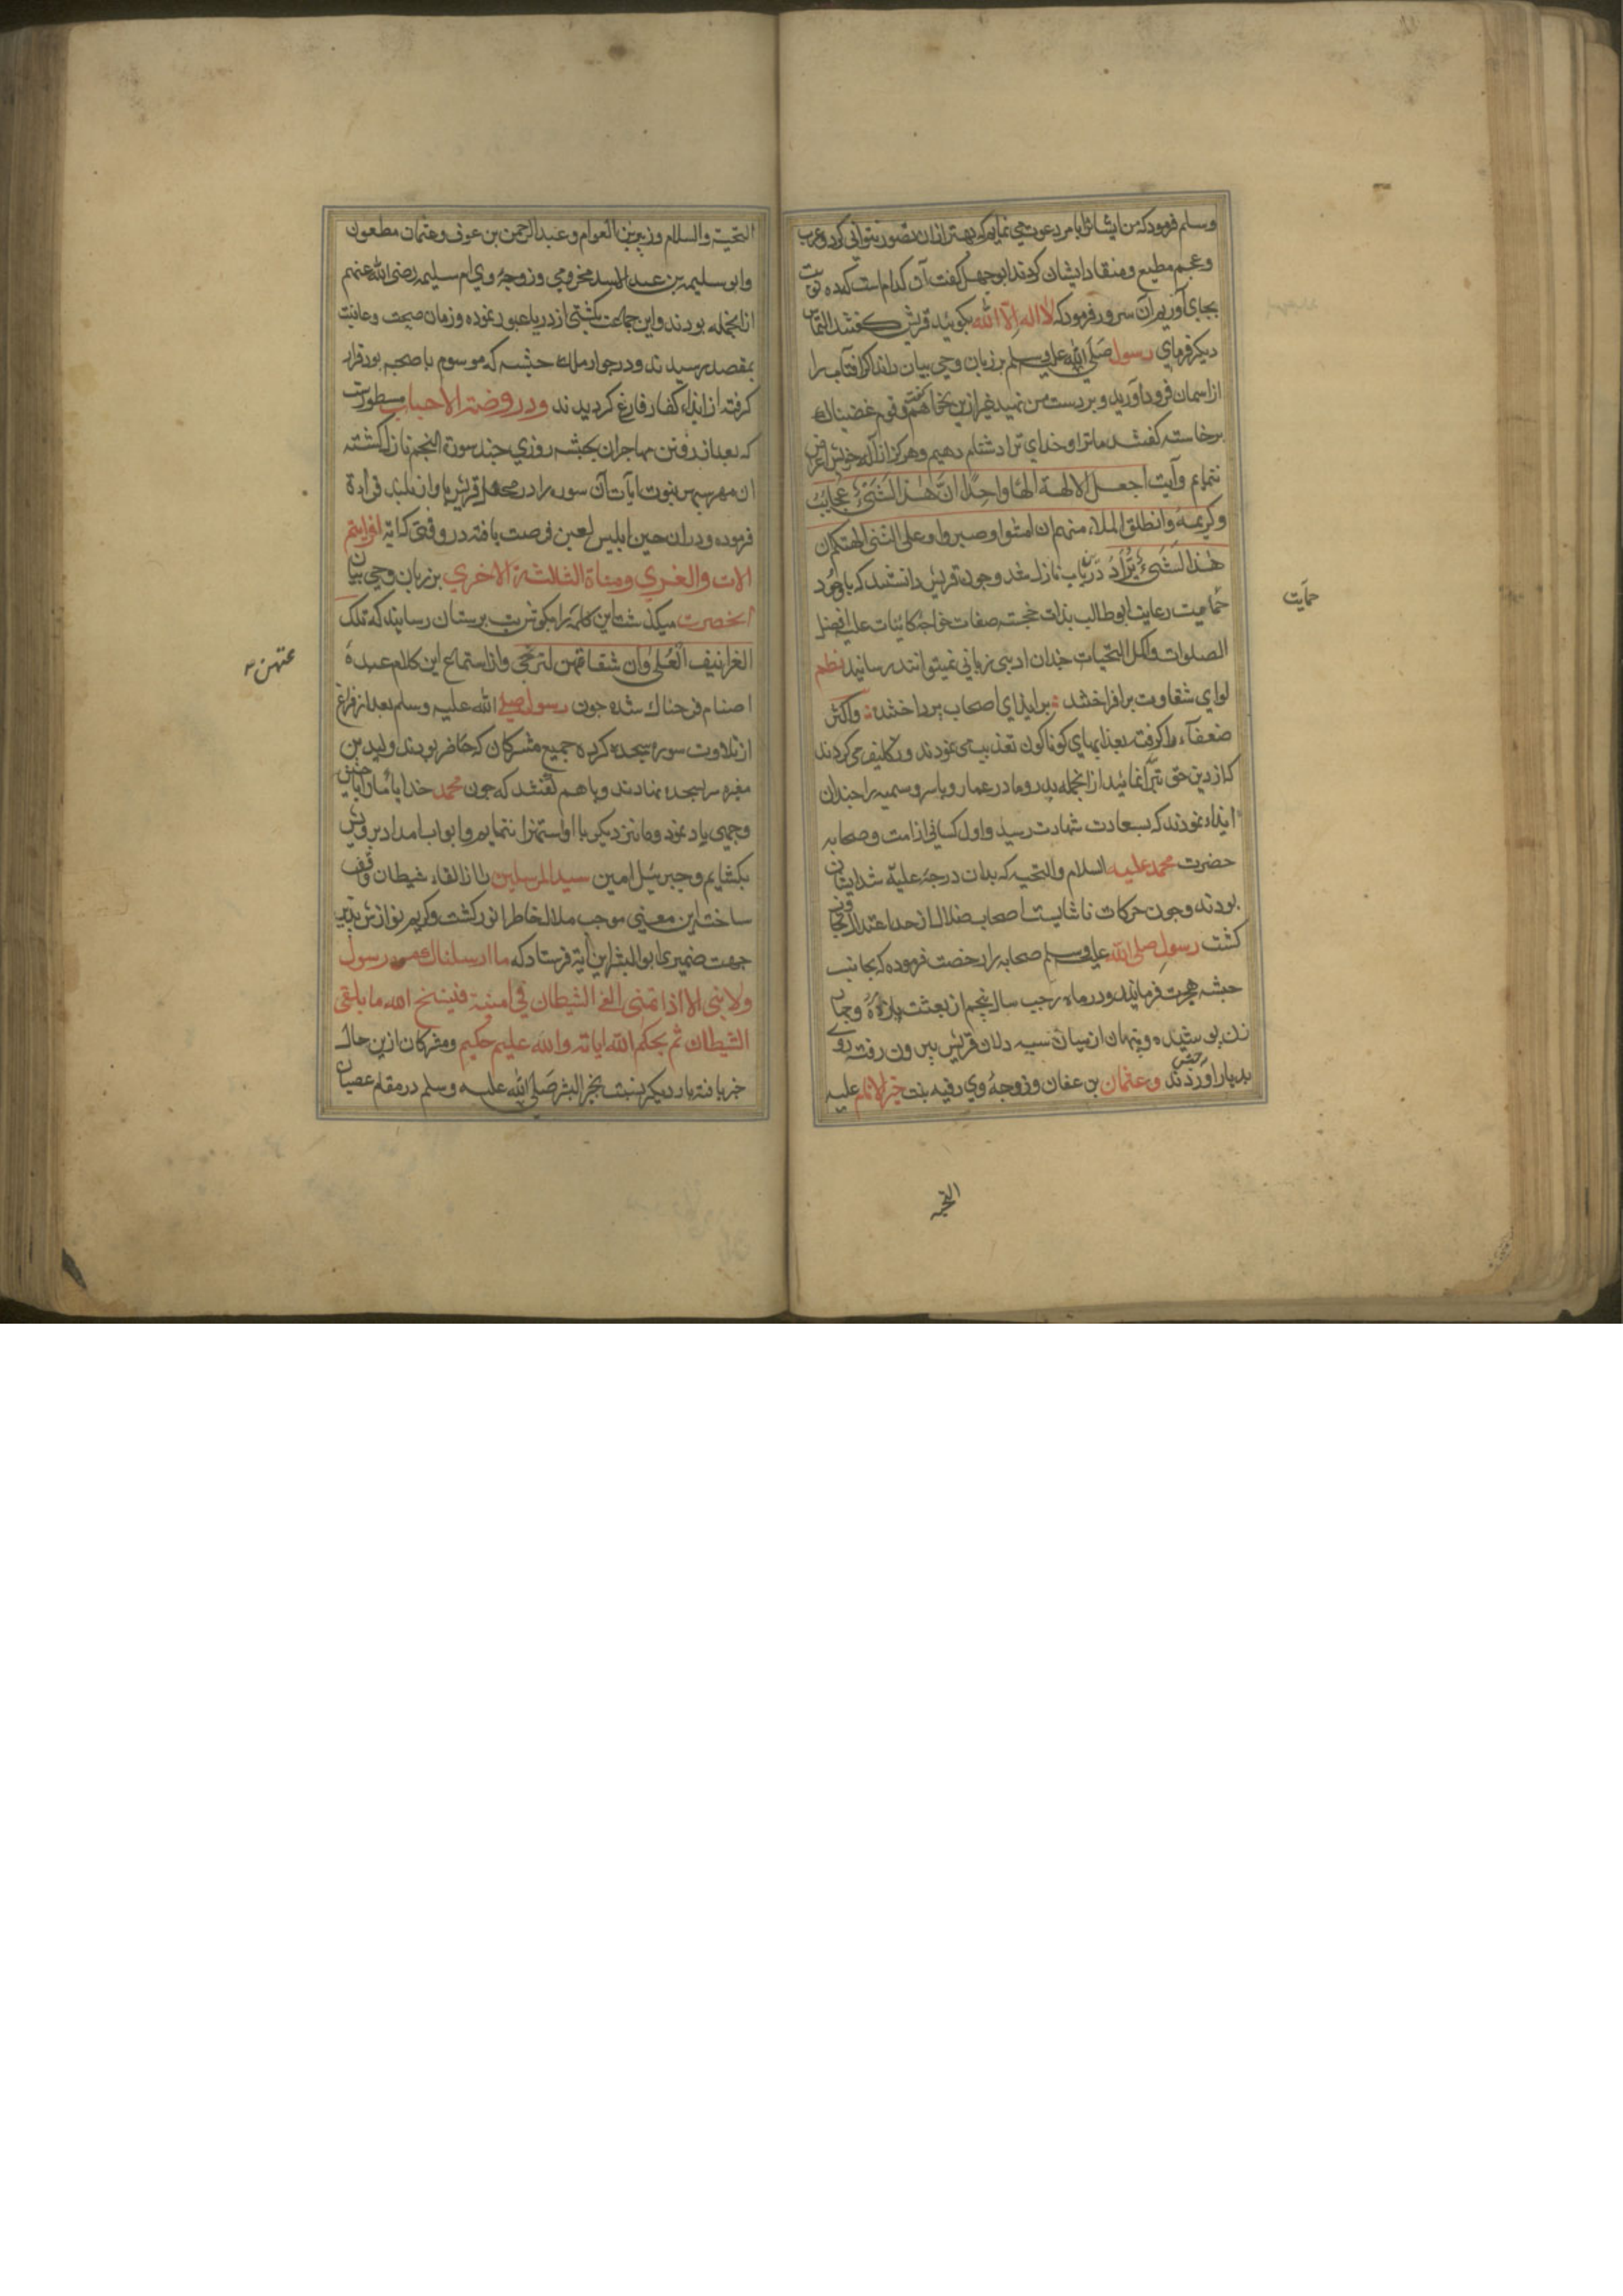 وسلم فرمود که من ایشانرا بامر دعوت می نمایم که بهتر ازان تصور نتوانی کرد و عرب
و عجم مطیع و منقاد ایشان کردند ابوجهل کفت آن کدام است که ده نوبت
بجای آوریم آن سرور فرمود که لا اله الا الله بکویید قریش کفتند التماس
دیکر فرمای رسول صلی الله علیه وسلم بر زبان وحی بیان راند که اکر آفتاب را
از اسمان فرود آورید و بر دست من نهید غیر ازین نخواهم کفت و قوم غضبناک
برخاسته کفتند ما ترا و خدای ترا دشنام دهیم و هرکز از آلهه خویش اعراض
ننمایم و آیت اجعل الالهة الها واحدا ان هذا لشیء عجاب
و کریمه و انطلق الملاء منهم ان امشوا و صبروا و علی الهتکم ان
هذا لشیء یراد درین باب نازل شد و چون قریش دانستند که باوجود
حمایت رعایت ابوطالب بذات خجسته صفات خواجه کاینات علیه افضل
الصلوات و اکمل التحیات چندان ادبی زبانی نمیتوانند رسانید نظم
لوای شقاوت برافراختند برایذای اصحاب پرداختند و اکثر
ضعفآء را کرفته بعذابهای کوناکون تعذیب می نمودند و تکلیف می کردند
که از دین حق تبرا نمائید از انجمله پدر و مادر عمار و یاسر و سمیه را چندان
ایذاء نمودند که بسعادت شهادت رسید و اول کسانی از امت و صحابه
حضرت محمد علیه السلام و التحیه که بدان درجه علیه شد ایشان
بودند و چون حرکات ناشایسته اصحاب ضلال از حد اعتدال تجاوز
کشت رسول صلی الله علیه وسلم صحابه را رخصت فرموده که بجانب
حبشه هجرت فرمایند و در ماه رجب سال پنجم از بعثت یازده مرد و چهار
زن پوشیده و پنهان از میان سیه دلان قریش بیرون رفته روی
بدیار حبش آوردند و عثمان بن عفان و زوجه وی رقیه بنت خیر الانام علیه
حمایت
التحیه
التحیة والسلام و زبیر بن العوام و عبد الرحمن بن عوف و عثمان مطعون
و ابو سلیمه بن عبد الاسد مخزومی و زوجه وی ام سلیمه رضی الله عنهم
از انجمله بودند و این جماعت بکشتی از دریا عبور نموده و زمان صحت و عافیت
بمقصد رسیدند و در جوار ملک حبشه که موسوم باصحمه بود قرار
کرفته از ایذاء کفار فارغ کردیدند و در روضة الاحباب مسطورست
که بعد از رفتن مهاجران بحبشه روزی چند سورة النجم نازل کشته
ان مهر سپهر نبوت ایات آن سوره را در محفل قریش باواز بلند قراءة
فرموده و دران حین ابلیس لعین فرصت یافته در وقتی که آیة افرایتم
اللات والعزی ومناة الثالثة الاخری بر زبان وحی بیان
انحضرت میکذشت این کلمه را بکوش بت پرستان رسانید که تلک
الغرانیق العلی وان شفاعتهن لترتجی و از استماع این کلام عبده
اصنام فرحناک شده چون رسول صلی الله علیه وسلم بعد از فراغ
از تلاوت سوره سجده کرده جمیع مشرکان که حاضر بودند ولید بن
مغیره سر بسجده نهادند و باهم کفتند که چون محمد خدایان مارا بخیر
و خوبی یاد نمود و ما نیز دیکر با او استهزا ننمایم و ابواب امداد بر رویش
بکشایم و جبرئیل امین سید المرسلین را از القاء شیطان واقف
ساخت این معنی موجب ملال خاطر انور کشت و کریم نوازش پذیر
جهت ضمیری ابو البشر این آیة فرستاد که ما ارسلناک من رسول
ولا نبی الا اذا تمنی القی الشیطان فی امنیته فینسخ الله ما یلقی
الشیطان ثم یحکم الله ایاته والله علیم حکیم و مشرکان ازین حال
خبر یافته بار دیکر نسبت بخیر البشر صلی الله علیه وسلم در مقام عصیان
عتهن